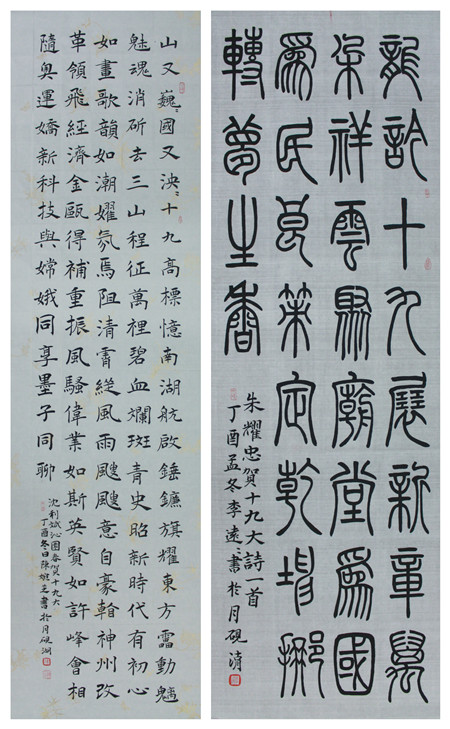 龍訡十九展新章萬
朵祥雲聚廟堂為國
為民良策定乾坤挪
轉夢生香
朱耀忠賀十九大詩一首
丁酉孟冬李遠書於月硯清
山又巍〻國又泱〻十九高標憶南湖航啟錘鐮旗耀東方靁動魑
魅魂消斫去三山程征萬裡碧血斕斑青史昭新時代有初心
如畫歌韻如潮氛焉阻清霄縱風雨意自豪翰神州改
革領飛經濟金甌得補重振風騷偉業如斯英賢如許峰會相
隨奧運嬌新科技與嫦娥同享墨子同聊
沈利斌沁園春賀十九大
丁酉冬日陳書於月硯湖